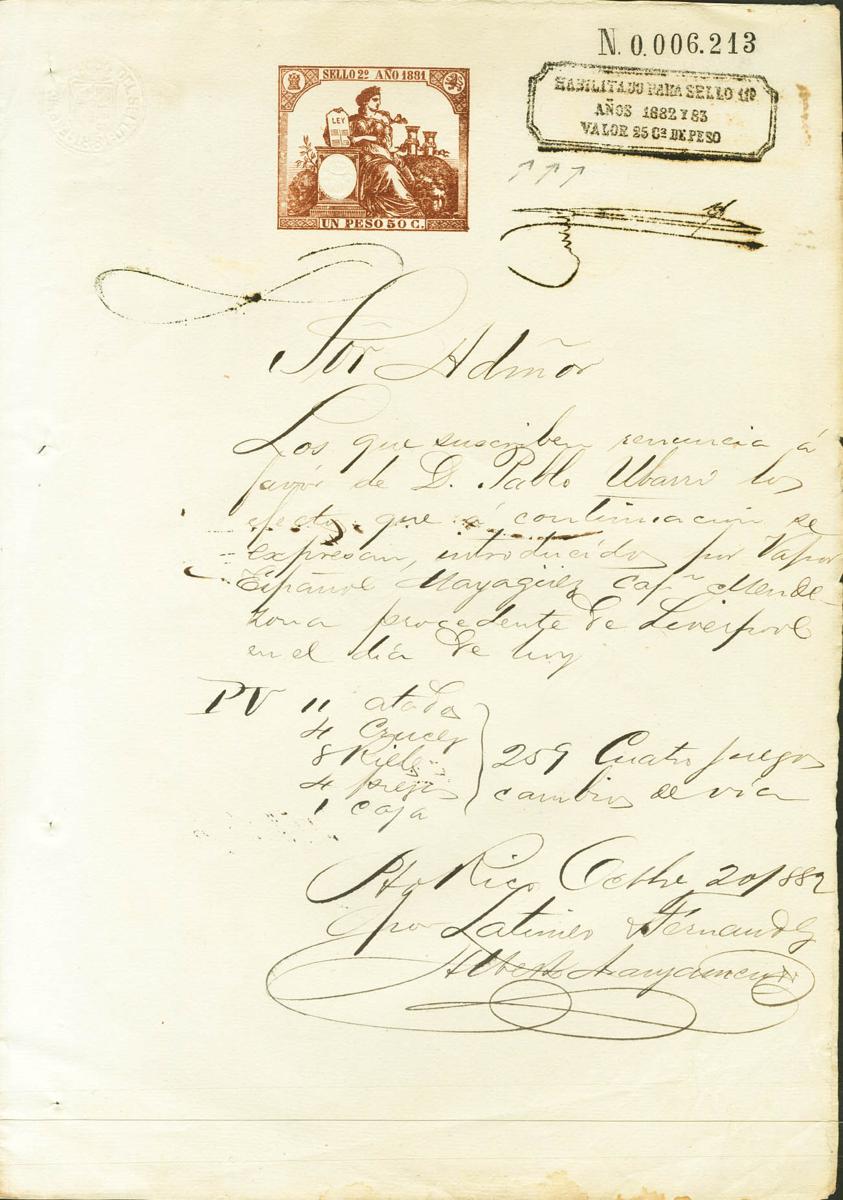 N. 0,006.213
SELLO 2º AÑO 1881
LEY
UN PESO 50 C.
HABILITADO PARA SELLO 11º
AÑOS 1882 Y 83
VALOR 25 Cs DE PESO
Sõr Admõr
Los que suscriben renuncia á
favor de D. Pablo Ubarri los
efectos que á continuacion se
expresan, introducidos por Vapor
Español Mayagüez Capn Mende-
zona procedente de Liverpool
en el dia de hoy
PV 11 atados
4 Cruces
8 Rieles
4 piezas
1 caja
259 Cuatro juegos
cambios de via
Pto Rico Octbe 20/882
por Latimer & Fernandez
Alberto